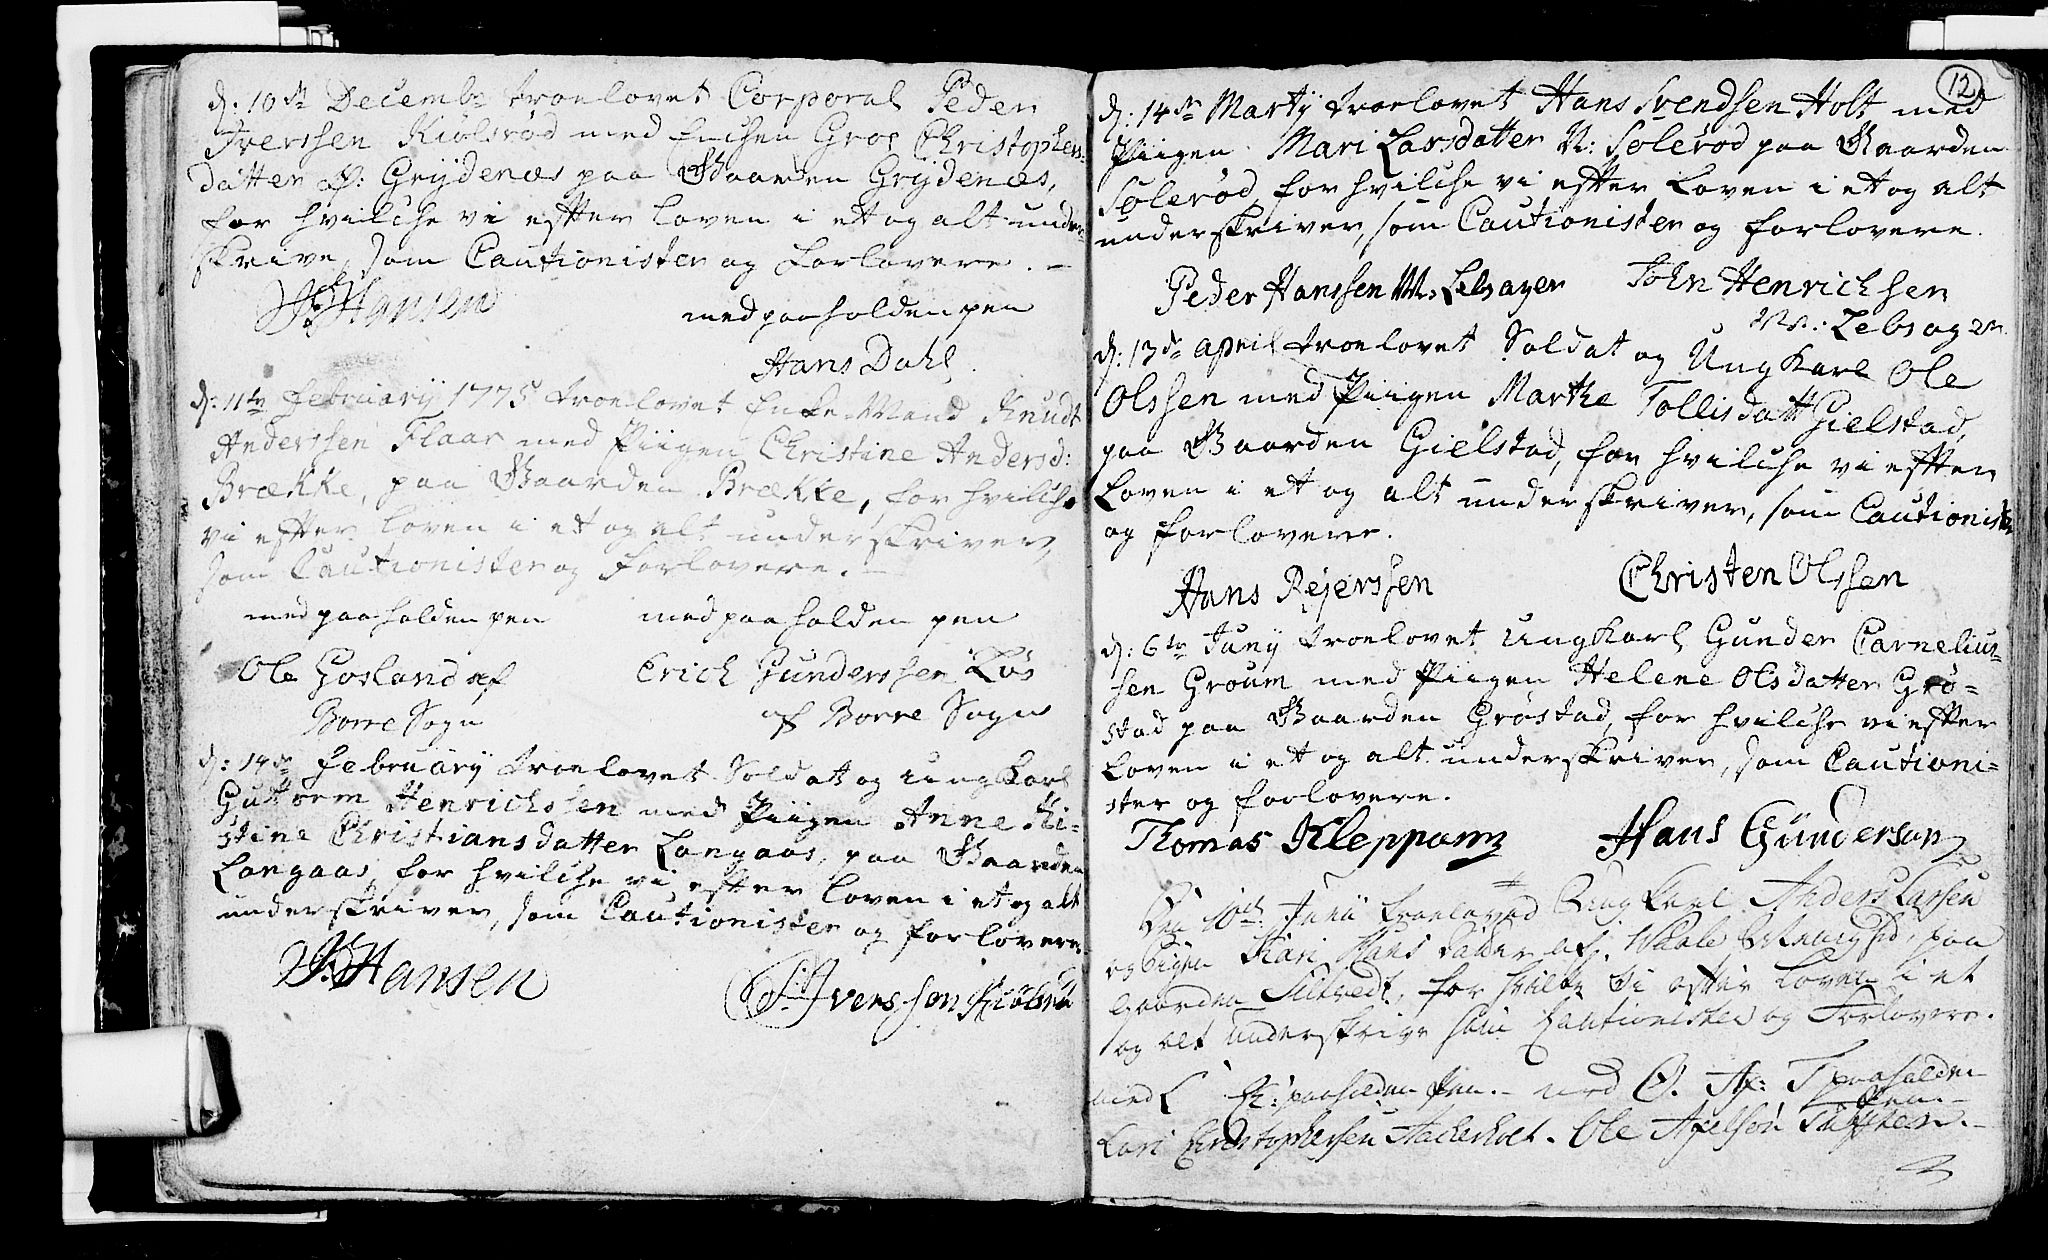 d: 10de Decembr troelovet Corporal Peder
Iverssen Kiølsrød med Enchen Groe Christophers-
datter N: Grÿdenæs paa Gaarden Grÿdenæs,
for hvilche vi efter loven i et og alt under-
skrive, som Cautionister og Forlovere. –
Hansen
med paaholden pen
Hans Dahl.
d: 11te februarÿ 1775 troelovet Enke-Mand Knudt
Anderssen Flaar med Piigen Christine Andersd:
Brække, paa Gaarden Brække, for hvilche
vi efter loven i et og alt underskriver,
som Cautionister og forlovere. –
med paaholden pen med paaholden pen
Ole Gosland af Erich Gunderssen Røs
Borre Sogn af Borre Sogn
d: 14de februarÿ troelovet Soldat og ungkarl
Guttorm Henrichssen med Piigen Anne Ki-
stine Christiansdatter Langaas, paa Gaarden
Langaas, for hvilche vi efter loven i et og alt
underskriver, som Cautionister og forlovere
Hansen
P: Iverssøn Kiølsrø
12
d: 14de Martÿ troelovet Hans Svendsen Holt med
Piigen Mari Larsdatter N: Solerød paa Gaarden
Solerød, for hvilche vi efter loven i et og alt
underskriver, som Cautionister og forlovere.
Peder Hanssen N: Lebsager John Henrichsen
N: Lebsager
d: 13de april troelovet Soldat og Ungkarl Ole
Olssen med Piigen Marthe Tollisdatt Gielstad,
paa Gaarden Gielstad, for hvilche vi efter
loven i et og alt underskriver, som Cautioniste
og forlovere.
Hans Rejerssen Christen Olssen
d: 6te Junÿ troelovet ungkarl Gunder Carnelius-
sen Groum med Piigen Helene Olsdatter Grø-
stad paa Gaarden Grøstad, for hvilche vi efter
loven i et og alt underskriver, som Cautioni-
ster og forlovere.
Thomas Kleppann Hans Gunderson
Den 10de Junii troeloved Ung Karl Anders Larsen
og Pigen Kari Hans datter af Waale paa
gaarden for hvilke Vi efter loven i et
og alt underskrive som Cautionister og Forlovere.
med L paaholden Pen. – med O. A: T paaholden
Pen. –
Lars Christophersen Aacherholt. Ole Axelsøn